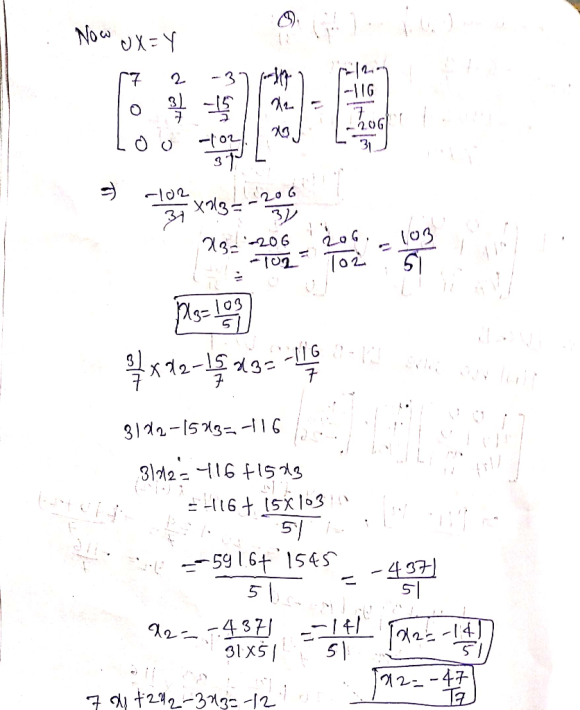 ③.
Now UX=Y
[7 2 -3] [x1] = [-12]
[0 31/7 -15/7] [x2] [-116/7]
[0 0 -102/31] [x3] [-206/31]
⇒ -102/31 × x3 = -206/31
x3 = -206/-102 = 206/102 = 103/51
=
x3 = 103/51
31/7 × x2 - 15/7 x3 = -116/7
31x2 - 15x3 = -116
31x2 = -116 + 15x3
= -116 + 15×103/51
= -5916 + 1545/51 = -4371/51
x2 = -4371/31×51 = -141/51 x2 = -141/51
x2 = -47/17
7x1 + 2x2 - 3x3 = -12